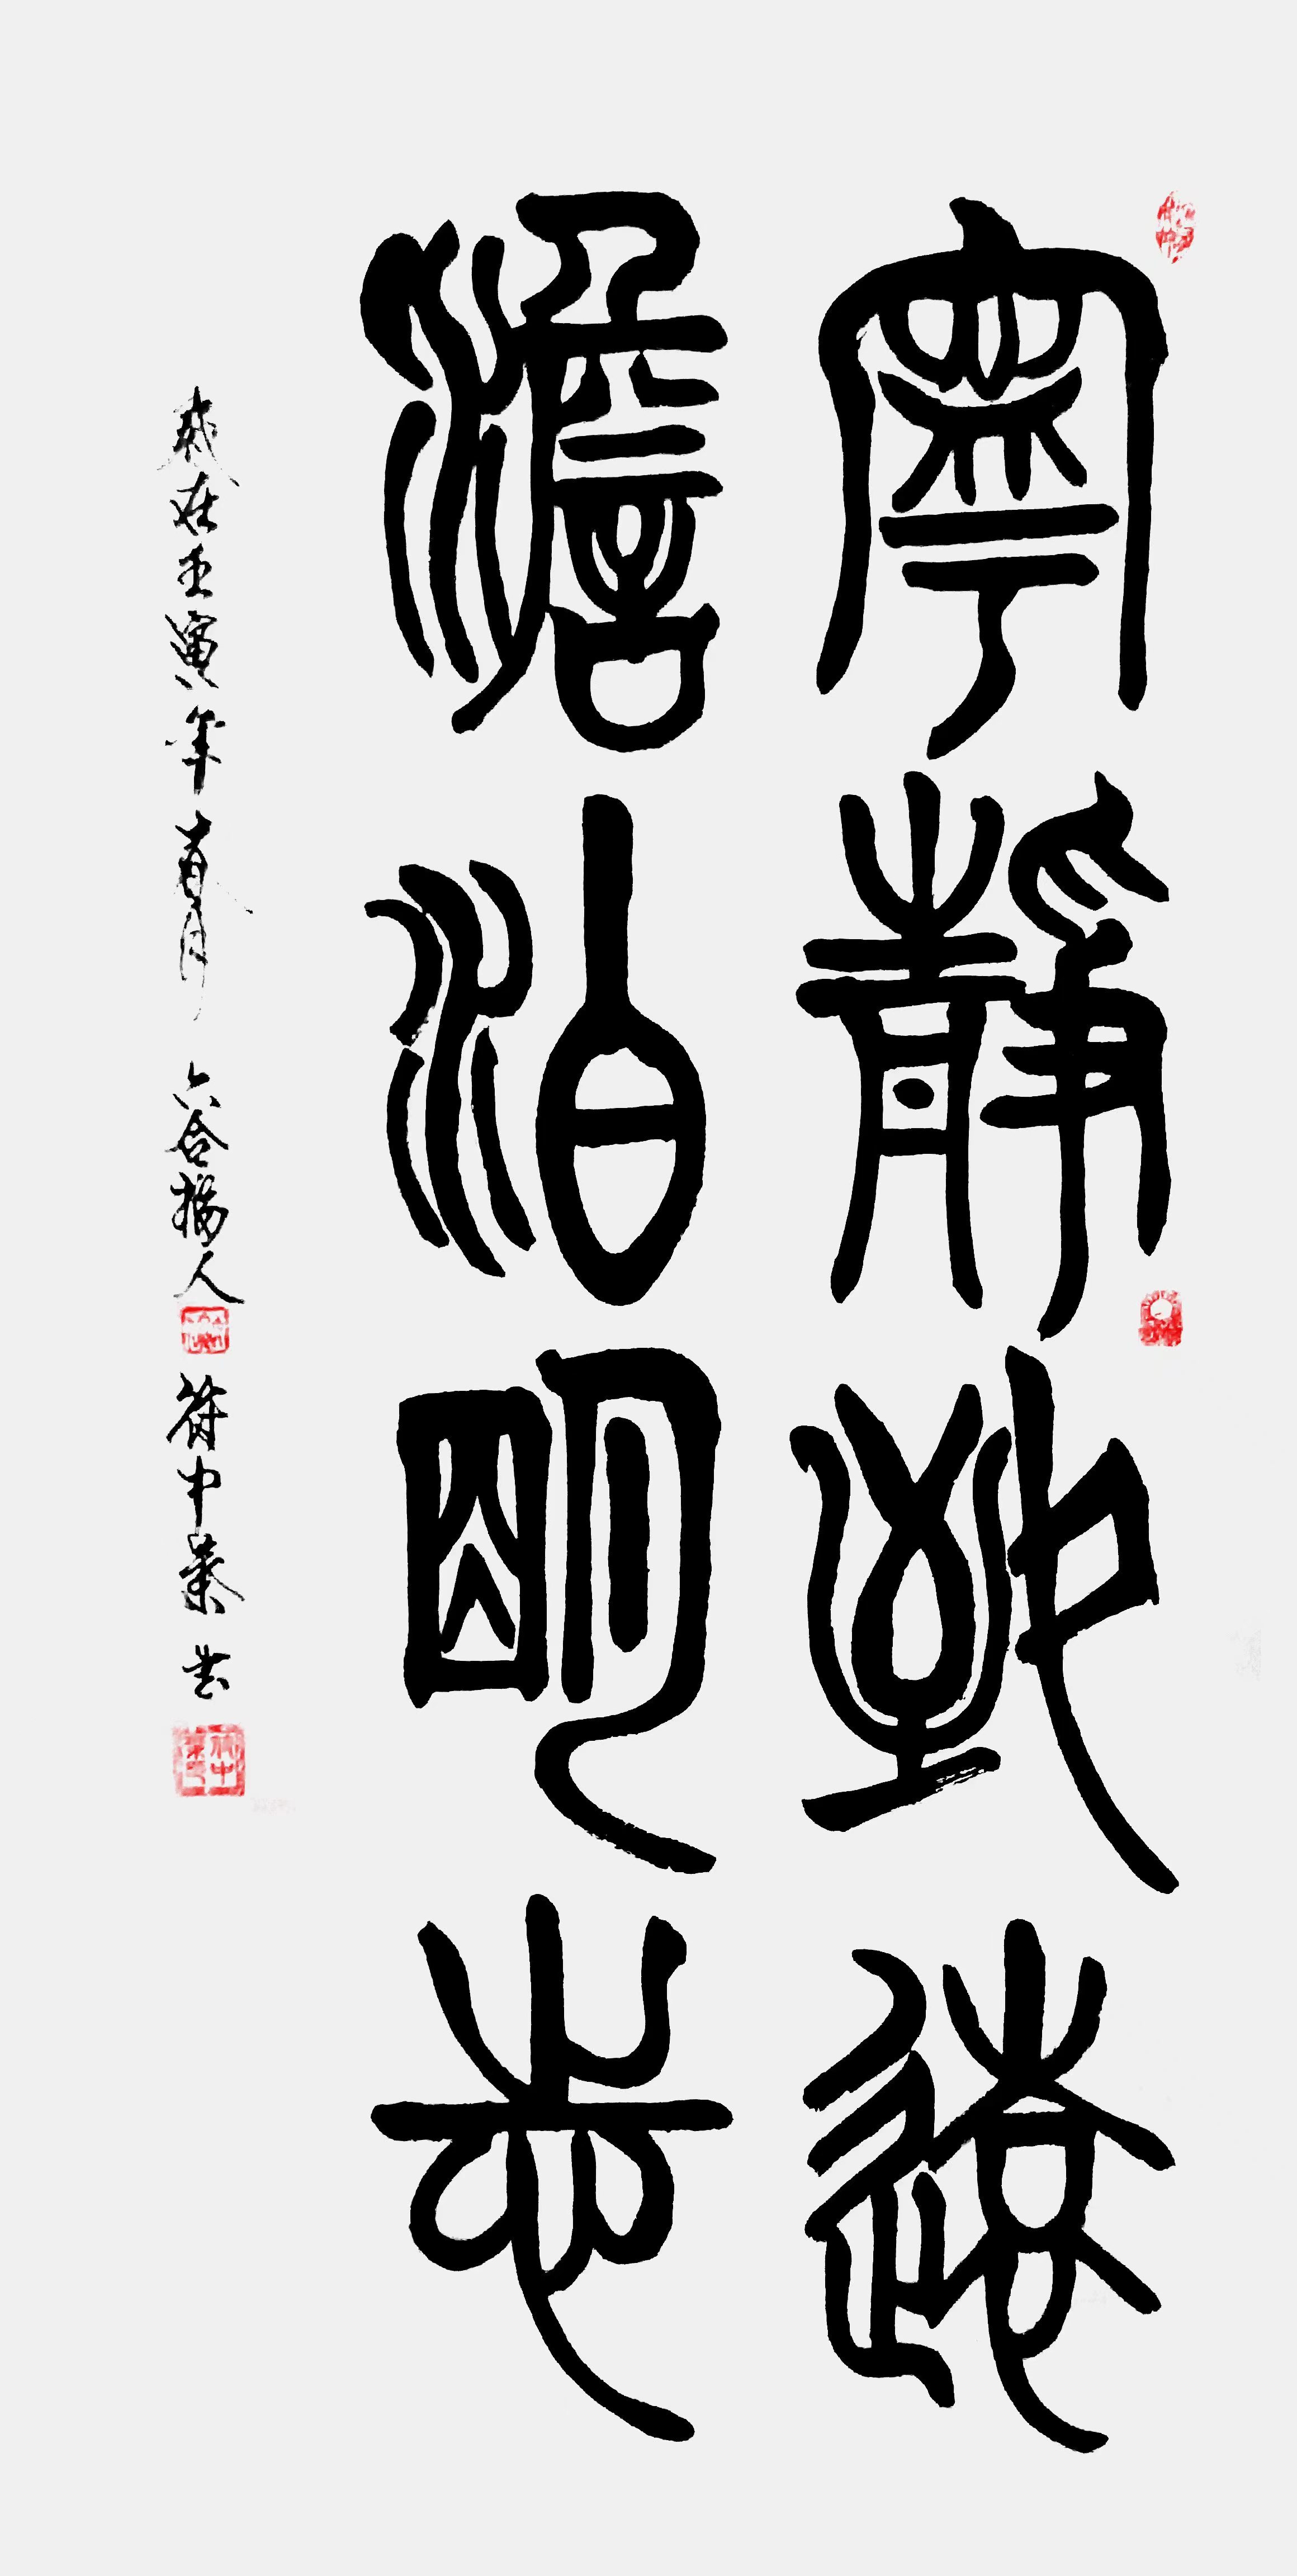 寧靜致遠
澹泊明志
歲在壬寅年春月 六合橋人 符中業書